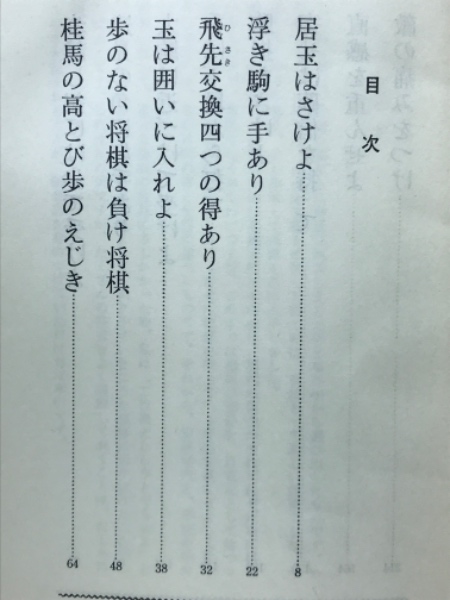 目次
居玉はさけよ……8
浮き駒に手あり……22
飛先交換四つの得あり……32
ひさき
玉は囲いに入れよ……38
歩のない将棋は負け将棋……48
桂馬の高とび歩のえじき……64